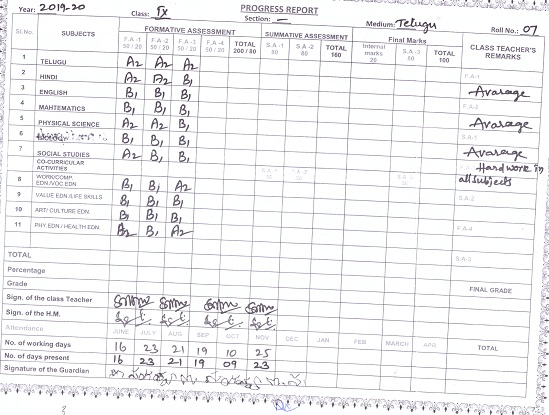 PROGRESS REPORT
Year: 2019-20 Class: IX Section: — Medium: Telugu Roll No.: 07
Sl.No. SUBJECTS FORMATIVE ASSESSMENT SUMMATIVE ASSESSMENT Final Marks CLASS TEACHER'S REMARKS
F.A-1 50 / 20 F.A-2 50 / 20 F.A-3 50 / 20 F.A-4 50 / 20 TOTAL 200 / 80 S.A -1 80 S.A -2 80 TOTAL 160 Internal marks 20 S.A -3 80 TOTAL 100
1 TELUGU A2 A2 A2 F.A-1
2 HINDI A2 A2 B1 Avarage
3 ENGLISH B1 B1 B1 F.A-2
4 MAHTEMATICS B1 B1 B1 Avarage
5 PHYSICAL SCIENCE A2 A2 B1 S.A-1
6 B1 B1 B1 Avarage
7 SOCIAL STUDIES A2 B1 B1 Hard work in
CO-CURRICULAR ACTIVITIES S.A -1 50 S.A -2 50 S.A -3 50 all subjects
8 WORK/COMP. EDN./VOC.EDN B1 B1 A2 S.A-2
9 VALUE EDN./LIFE SKILLS B1 B1 B1
10 ART/ CULTURE EDN. B1 B1 B1
11 PHY EDN / HEALTH EDN. B1 A2 F.A-4
TOTAL S.A-3
Percentage
Grade FINAL GRADE
Sign. of the class Teacher
Sign. of the H.M.
Attendance JUNE JULY AUG SEP OCT NOV DEC JAN FEB MARCH APR TOTAL
No. of working days 16 23 21 19 10 25
No. of days present 16 23 21 19 09 23
Signature of the Guardian